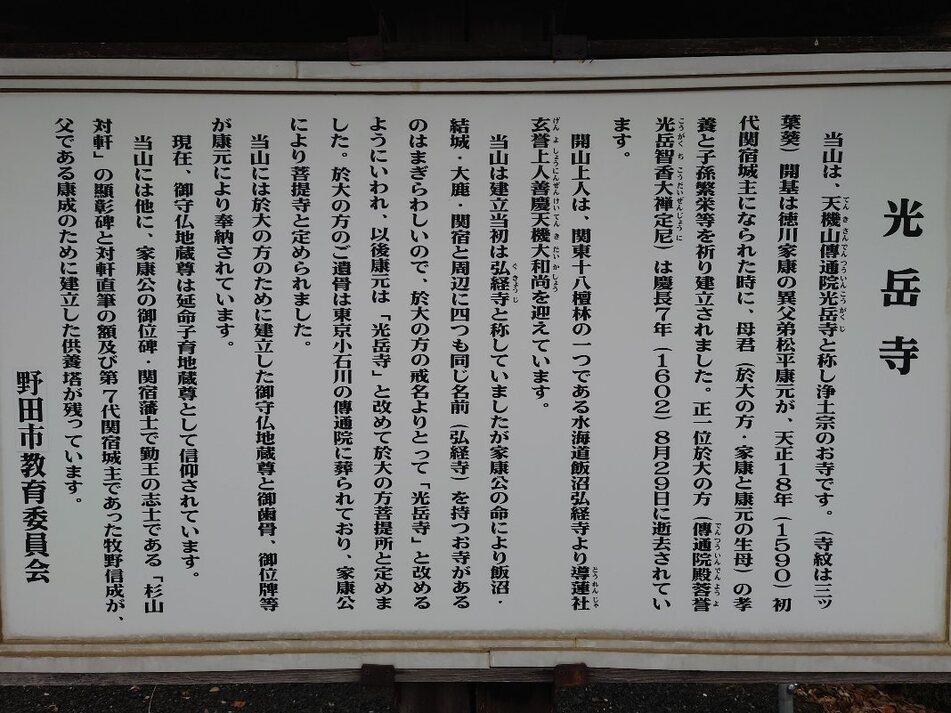 光岳寺
当山は、天機山傳通院光岳寺と称し浄土宗のお寺です。（寺紋は三ッ
葉葵）開基は徳川家康の異父弟松平康元が、天正18年（1590）初
代関宿城主になられた時に、母君（於大の方・家康と康元の生母）の孝
養と子孫繁栄等を祈り建立されました。正一位於大の方（傳通院殿蓉誉
光岳智香大禅定尼）は慶長7年（1602）8月29日に逝去されてい
ます。
開山上人は、関東十八檀林の一つである水海道飯沼弘経寺より導蓮社
玄誉上人善慶天機大和尚を迎えています。
当山は建立当初は弘経寺と称していましたが家康公の命により飯沼・
結城・大鹿・関宿と周辺に四つも同じ名前（弘経寺）を持つお寺がある
のはまぎらわしいので、於大の方の戒名よりとって「光岳寺」と改める
ようにいわれ、以後康元は「光岳寺」と改めて於大の方菩提所と定めま
した。於大の方のご遺骨は東京小石川の傳通院に葬られており、家康公
により菩提寺と定められました。
当山には於大の方のために建立した御守仏地蔵尊と御歯骨、御位牌等
が康元により奉納されています。
現在、御守仏地蔵尊は延命子育地蔵尊として信仰されています。
当山には他に、家康公の御位碑・関宿藩士で勤王の志士である「杉山
対軒」の顕彰碑と対軒直筆の額及び第7代関宿城主であった牧野信成が、
父である康成のために建立した供養塔が残っています。
野田市教育委員会